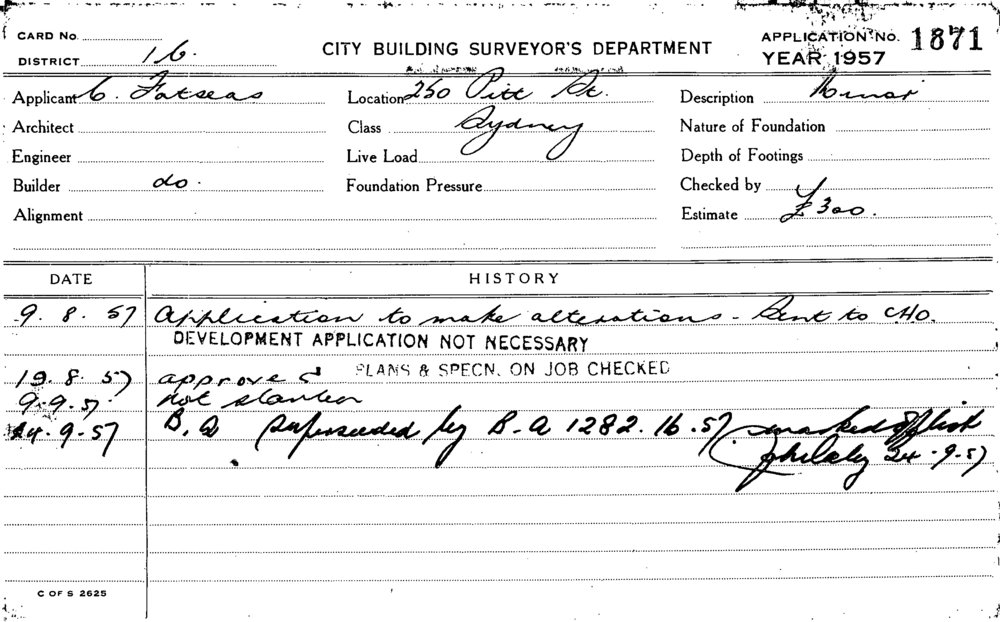 CARD No.
DISTRICT 16.
CITY BUILDING SURVEYOR'S DEPARTMENT
APPLICATION No. 1871
YEAR 1957
Applicant C. Fatseas
Location 250 Pitt St.
Description Minor
Architect
Class Sydney
Nature of Foundation
Engineer
Live Load
Depth of Footings
Builder do.
Foundation Pressure
Checked by
Alignment
Estimate £300.
DATE HISTORY
9. 8. 57 Application to make alterations - Sent to CHO.
DEVELOPMENT APPLICATION NOT NECESSARY
19. 8. 57 approved PLANS & SPECN. ON JOB CHECKED
9-9.57 not started
24-9-57 B.A superseeded by B.A 1282.16.57 (marked off list
24-9-57
C OF S 2625